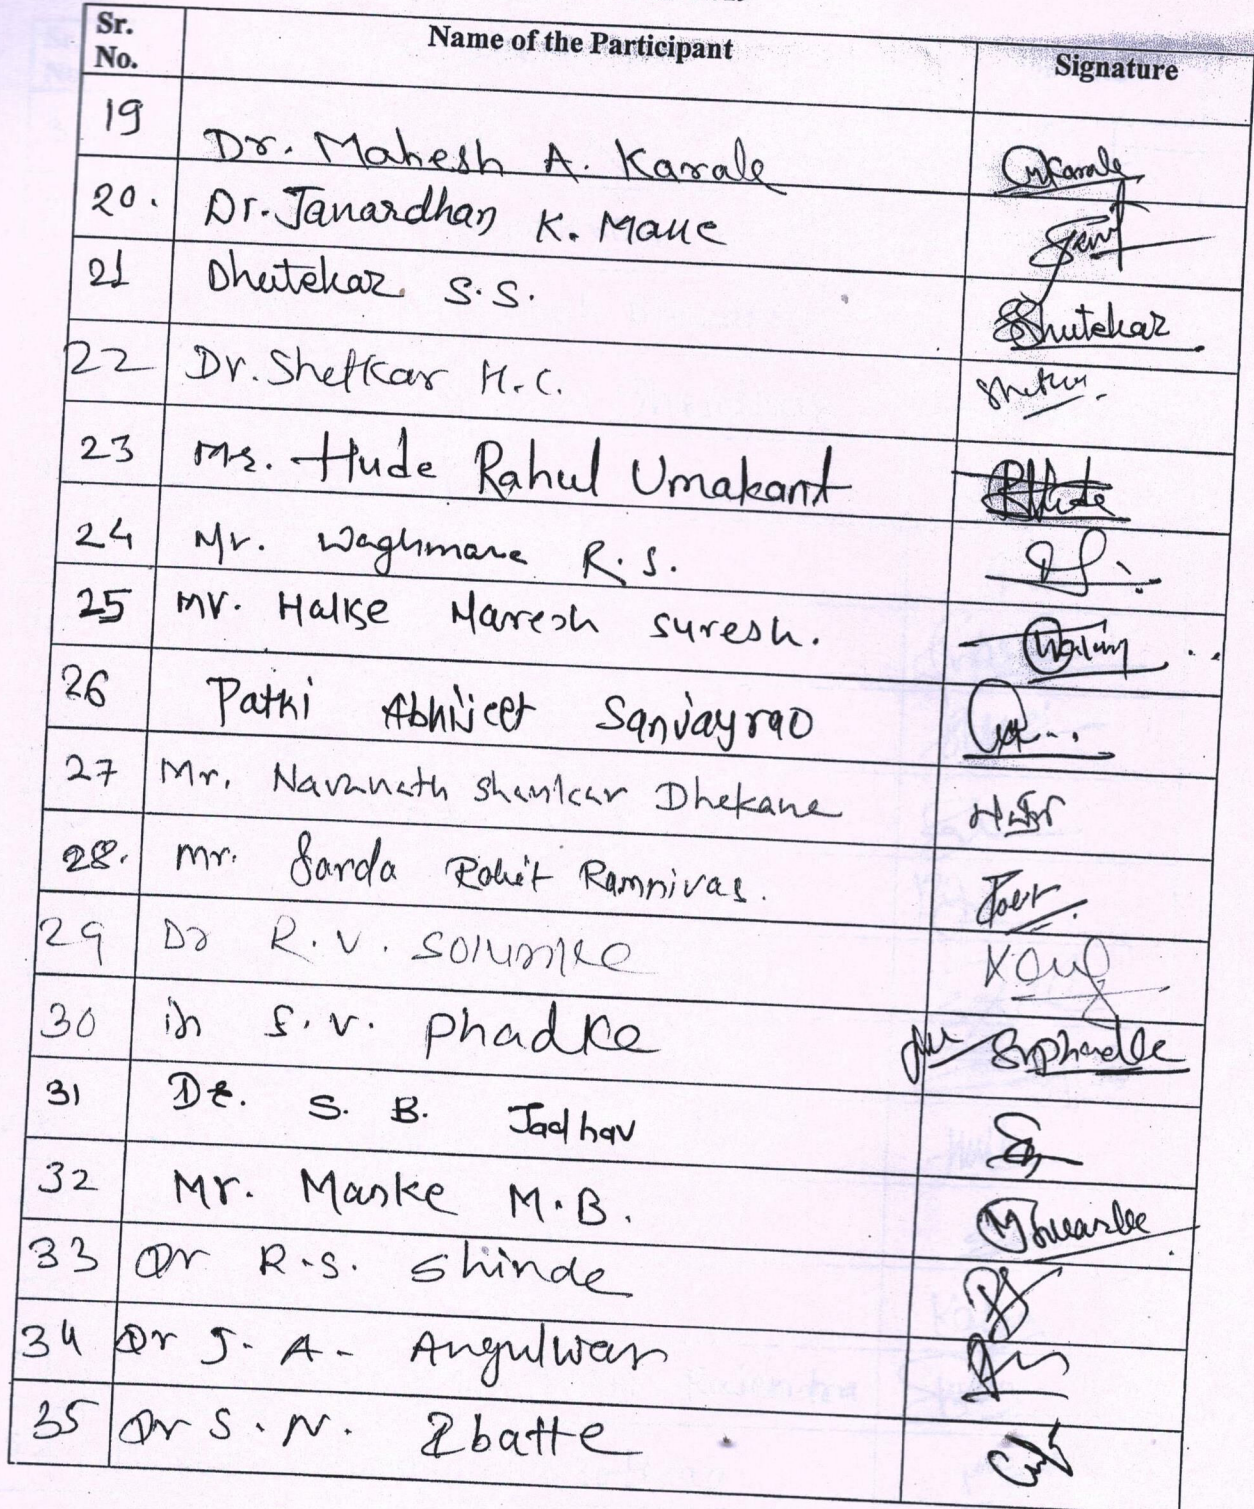 Sr. No. Name of the Participant Signature
19 Dr. Mahesh A. Karale Karale
20. Dr. Janardhan K. Mane
21 Dhutekar S.S. Dhutekar
22 Dr. Shetkar H.C.
23 Mr. Hude Rahul Umakant RHude
24 Mr. Waghmare R.S.
25 Mr. Halse Maresh Suresh.
26 Patki Abhijeet Sanjayrao
27 Mr. Navanath Shankar Dhekane
28. Mr. Sarda Rohit Ramnivas.
29 Dr R.V. Solunke
30 S.V. Phadke Svphadke
31 Dr. S. B. Jadhav
32 Mr. Maske M.B.
33 Dr R.S. Shinde
34 Dr S. A. Angulwar
35 Dr S. N. Ibatte